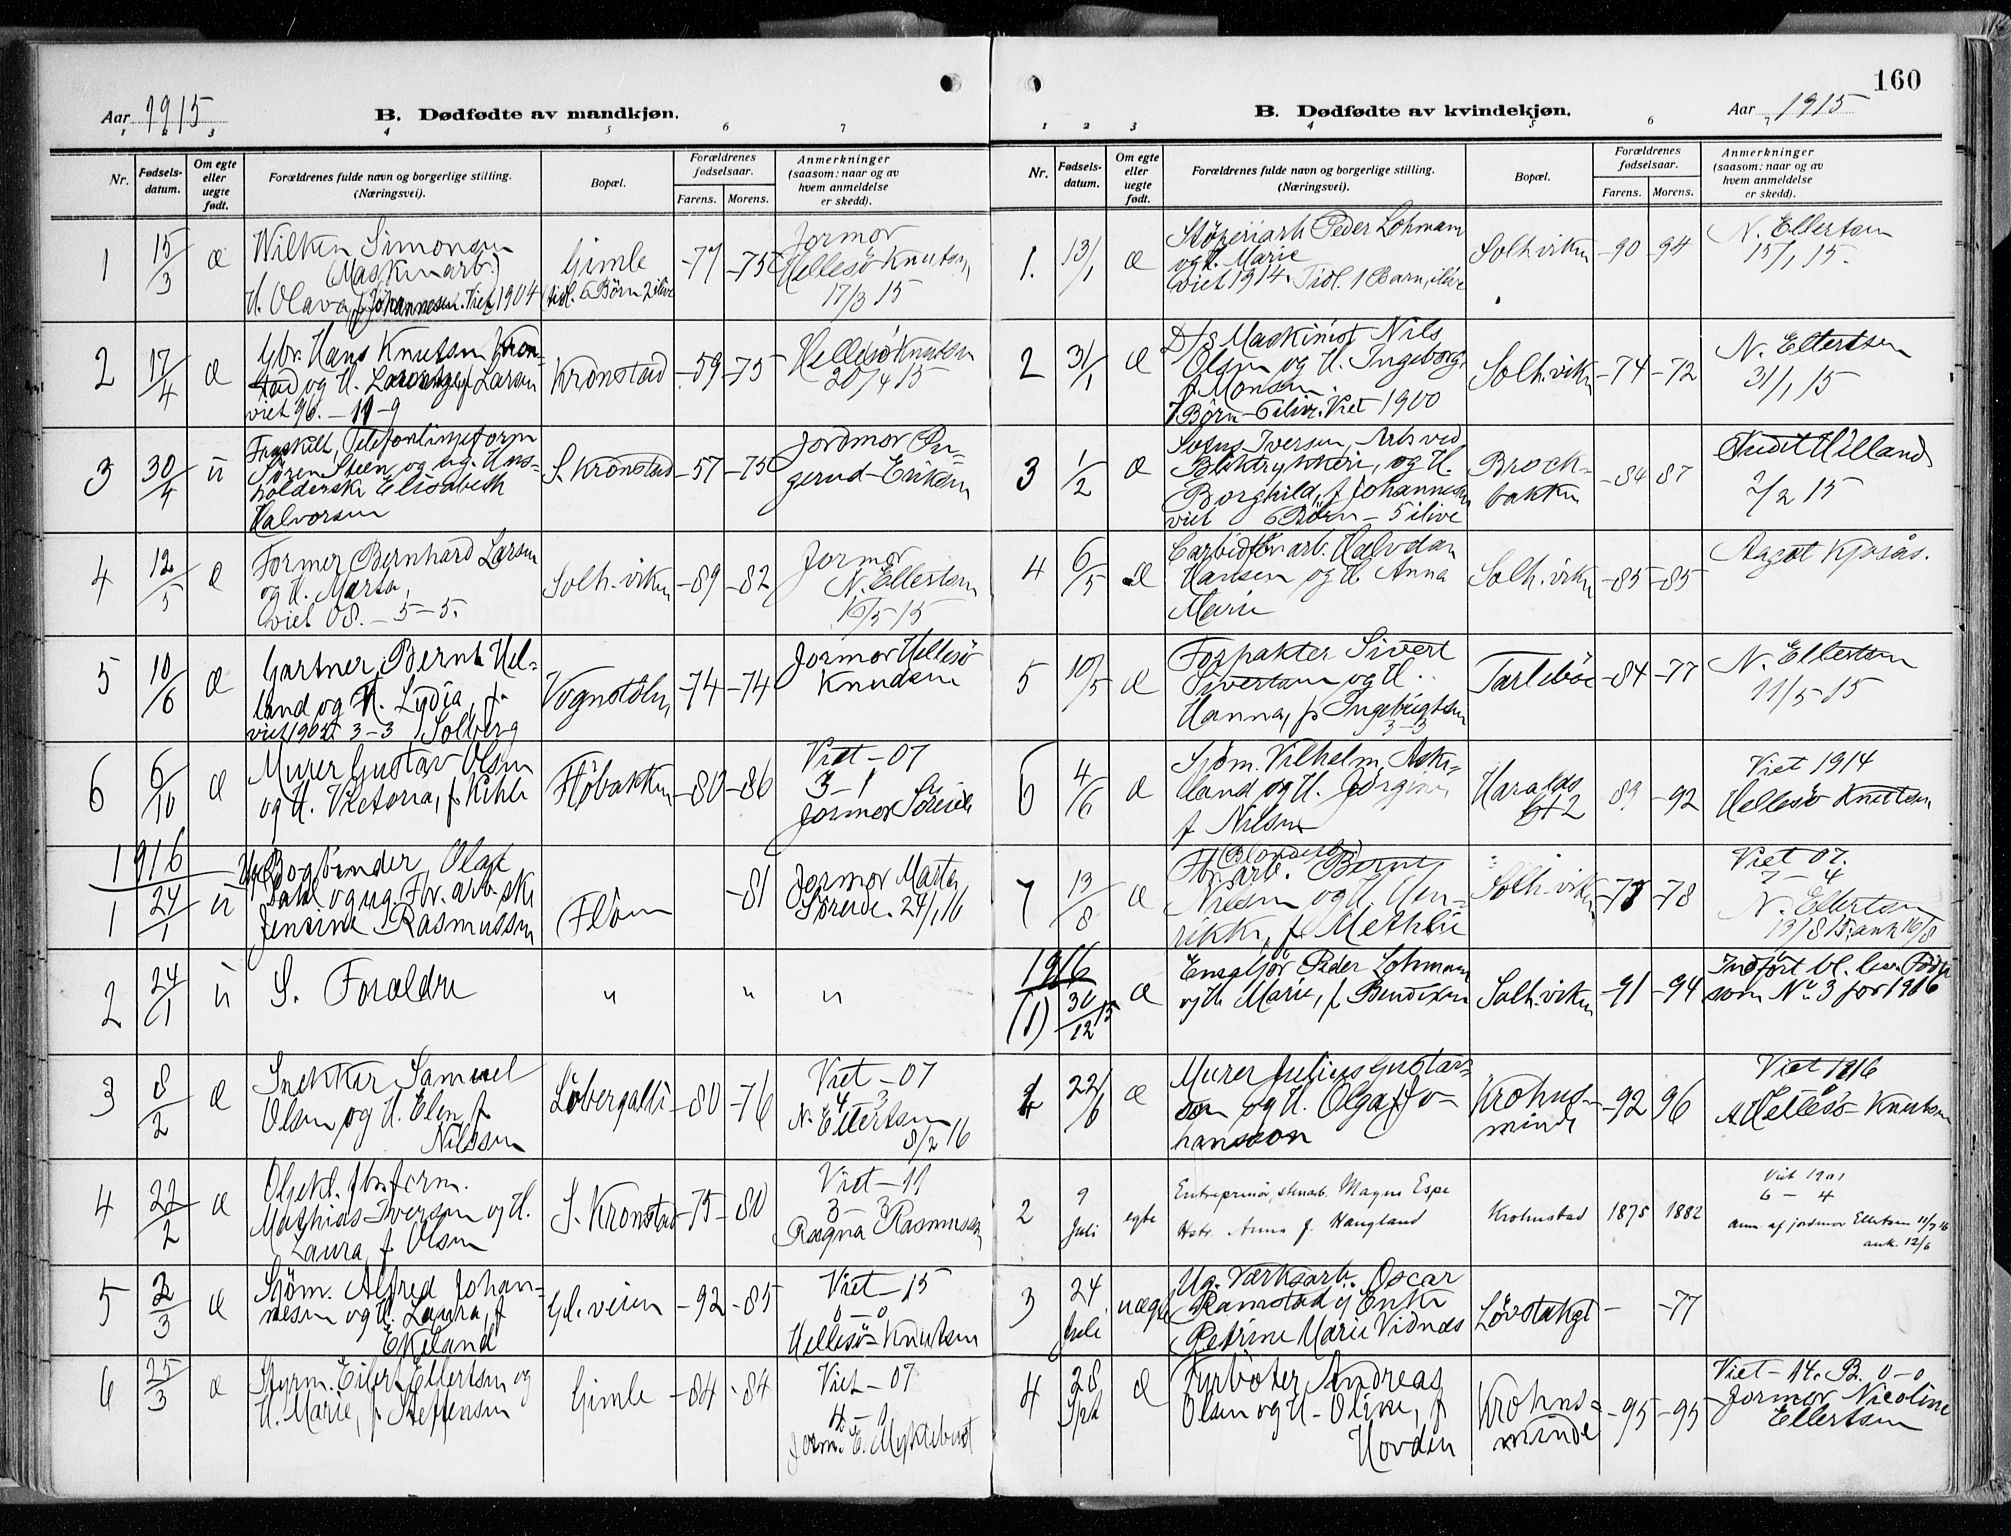 160
Aar 1915
B. Dødfødte av mandkjøn.
1 2 3 4 5 6 7
Nr.
Fødsels-
datum.
Om egte
eller
uegte
født.
Forældrenes fulde navn og borgerlige stilling.
(Næringsvei).
Bopæl.
Forældrenes
fødselsaar.
Farens. Morens.
Anmerkninger
(saasom: naar og av
hvem anmeldelse
er skedd).
1 15/3 æ
Wilken Simonsen
(Maskinarb.)
H. Olava, f. Johannesen. Viet 1904
Gimle
tidl. 6 Børn 2 ilive
-77 -75
Jormor
Hellesö Knutsen
17/3 15
2 17/4 æ
Gbr. Hans Knutsen Kron-
stad og H. f. Larsen
viet 96. - 11-9
Kronstad
-59 -75
Hellesö Knutsen
20/4 15
3 30/4 ü
Fraskilt, Telefonlinjeform
Sören Steen og ug. Hus-
holderske Elisabeth
Halvorsen
S. Kronstad
-57 -75
Jordmor
Eriksen
4 12/5 æ
Former Bernhard Larsen
og H. Marta,
viet 08. - 5-5.
Solh.viken
-89 -82
Jormor
N. Ellertsen
16/5 15
5 10/6 æ
Gartner Bernt Hel-
land og H. Lydia, f.
viet 1902 3-3 Solberg
Vognstölen
-74 -74
Jormor Hellesö
Knudsen
6 6/10 æ
Murer Gustav Olsen
og H. Victoria, f. Kihle
Flöbakken
-80 -86
Viet -07
3-1
Jormor Söreide
1916
1 24/1 ü
Ug. Bogbinder Olaf
Dahl og ug. Fbr. arb.ske
Jensine Rasmussen
Flöen
-81
Jormor Marta
Søreide. 24/1 16
2 24/1 ü
S. Forældre
" " "
3 8/2 æ
Snekker Samuel
Olsen og H. Elen f.
Nilssen
Löbergsalle
-80 -76
Viet -07
4-3
N. Ellertsen
8/2 16
4 22/2 æ
Mathias Iversen og H.
Laura f. Olsen
S. Kronstad
-75 -80
Viet -11
3-3
Ragna Rasmussen
5 2/3 æ
Sjöm. Alfred Johan-
nesen og H. Laura, f.
Ekeland
Gl. veien
-92 -85
Viet -15
0-0
Hellesö-Knutsen
6 25/3 æ
Styrm. Eilert Ellertsen og
H. Marie, f. Steffensen
Gimle
-84 -84
Viet -07
Jorm. E. Myklebust
B. Dødfødte av kvindekjøn.
Aar 1915
1 2 3 4 5 6 7
Nr.
Fødsels-
datum.
Om egte
eller
uegte
født.
Forældrenes fulde navn og borgerlige stilling.
(Næringsvei).
Bopæl.
Forældrenes
fødselsaar.
Farens. Morens.
Anmerkninger
(saasom: naar og av
hvem anmeldelse
er skedd).
1. 13/1 æ
Støperiarb. Peder Lohmann
og H. Marie
viet 1914. Tidl. 1 Barn, ilive
Solhviken
-90 -94
N. Ellertsen
15/1 15.
2 31/1 æ
D/S Maskinist Nils
Olsen og H. Ingeborg
f. Monsen
7 Børn - 6 ilive. Viet 1900
Solh.viken
-74 -72
N. Ellertsen
31/1 15
3 1/2 æ
Iversen, Arb. ved
Bliktrykkeri, og H.
Borghild, f. Johannesen
viet 6 Börn - 5 ilive
Brock-
bakken
-84 87
Hilland
2/2 15
4 6/5 æ
Carbidfbr.arb. Halvdan
Hansen og H. Anna
Marie
Solh.viken
-85 -85
Aagot Kjosås.
5 10/5 æ
Forpakter Sivert
Sivertsen og H.
Hanna, f. Ingebrigtsen
3-3
Tarlebö
-84 -77
N. Ellertsen
11/5 15
6 4/6 æ
Sjøm. Vilhelm Aske-
land og H. Jørgine
f. Nilsen
Haralds
gt 2
89 -92
Viet 1914
Hellesö Knutsen
7 13/8 æ
Fbr.arb. Bernt
Nilsen og H. Hen-
rikke, f. Methlie
Solh.viken
-77 -78
Viet 07.
7-4
N. Ellertsen
13/8 15, ank 16/8
1916
(1) 30/12 15 æ
Peder Lohmann
og H. Marie, f. Bendixen
Solh.viken
-91 -94
Indført bl. lev. Födte
som No 3 for 1916
1 22/6 æ
Murer Julius Gustav-
son og H. Olga f. Jo-
hansson
Krohns-
minde
-92 96
Viet 1916
A Hellesö-Knutsen
2 9 Juli egte
Entreprenør, stenarb. Magne Espe
Hstr. Anna f. Haugland
Krohnstad
1875 1882
Viet 1901
6 - 4
anm. af jordmor Ellertsen 11/7 16
ank. 12/6
3 24 Juli uægte
Ug. Værksarb. Oscar
Ramstad og Enke
Petrine Marie Vidnæs
Løvstakgt
- -77
4 28 Spt æ
Fyrböter Andreas
Olsen og H. Olive, f.
Hovden
Krohns-
minde
-95 -95
Viet -14. B. 0-0
Jormor Nicoline
Ellertsen